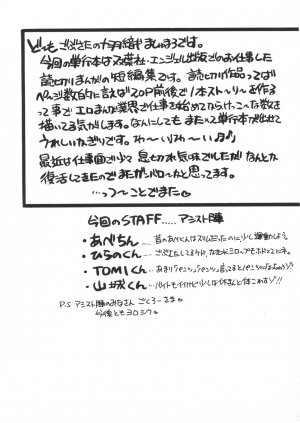 今回の単行本は双葉社・エンジェル出版でのお仕事した
読切りまんがの短編集です。読切り作品ってば
ページ数的に言えば20P前後で1本ストーリーを作る
って事でエロまんが業界で仕事を始めてからけっこーな数を
描いてる気がします。なんにしてもまた単行本が出せて
うれしいかぎりです。わーいわーい♪
最近は仕事面で少々息切れ気味でしたがなんとか
復活してきたのでまたがんばろーと思ってます。
…っつーことでまた
今回のSTAFF.....アシスト陣
・あべちん
・ひらのくん
・TOMIくん
・山城くん
P.S アシスト陣のみなさん ごくろーさま
今後ともヨロシク